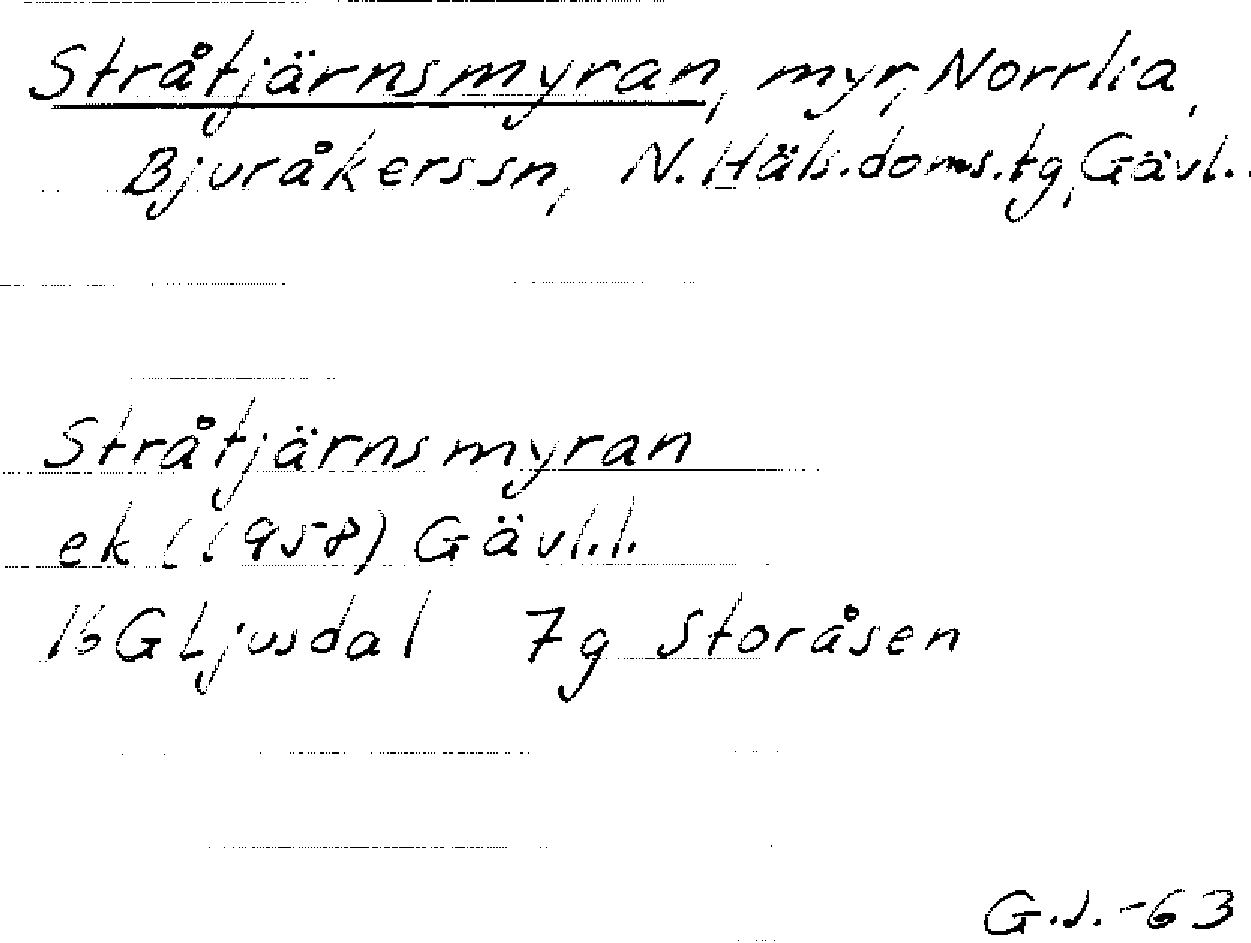 Stråtjärnsmyran, myr, Norrlia,
Bjuråkerssn, N. Häls. doms.tg, Gävl..
Stråtjärnsmyran
ek (1958) Gävl.l.
16G Ljusdal 7g Storåsen
G.J.-63